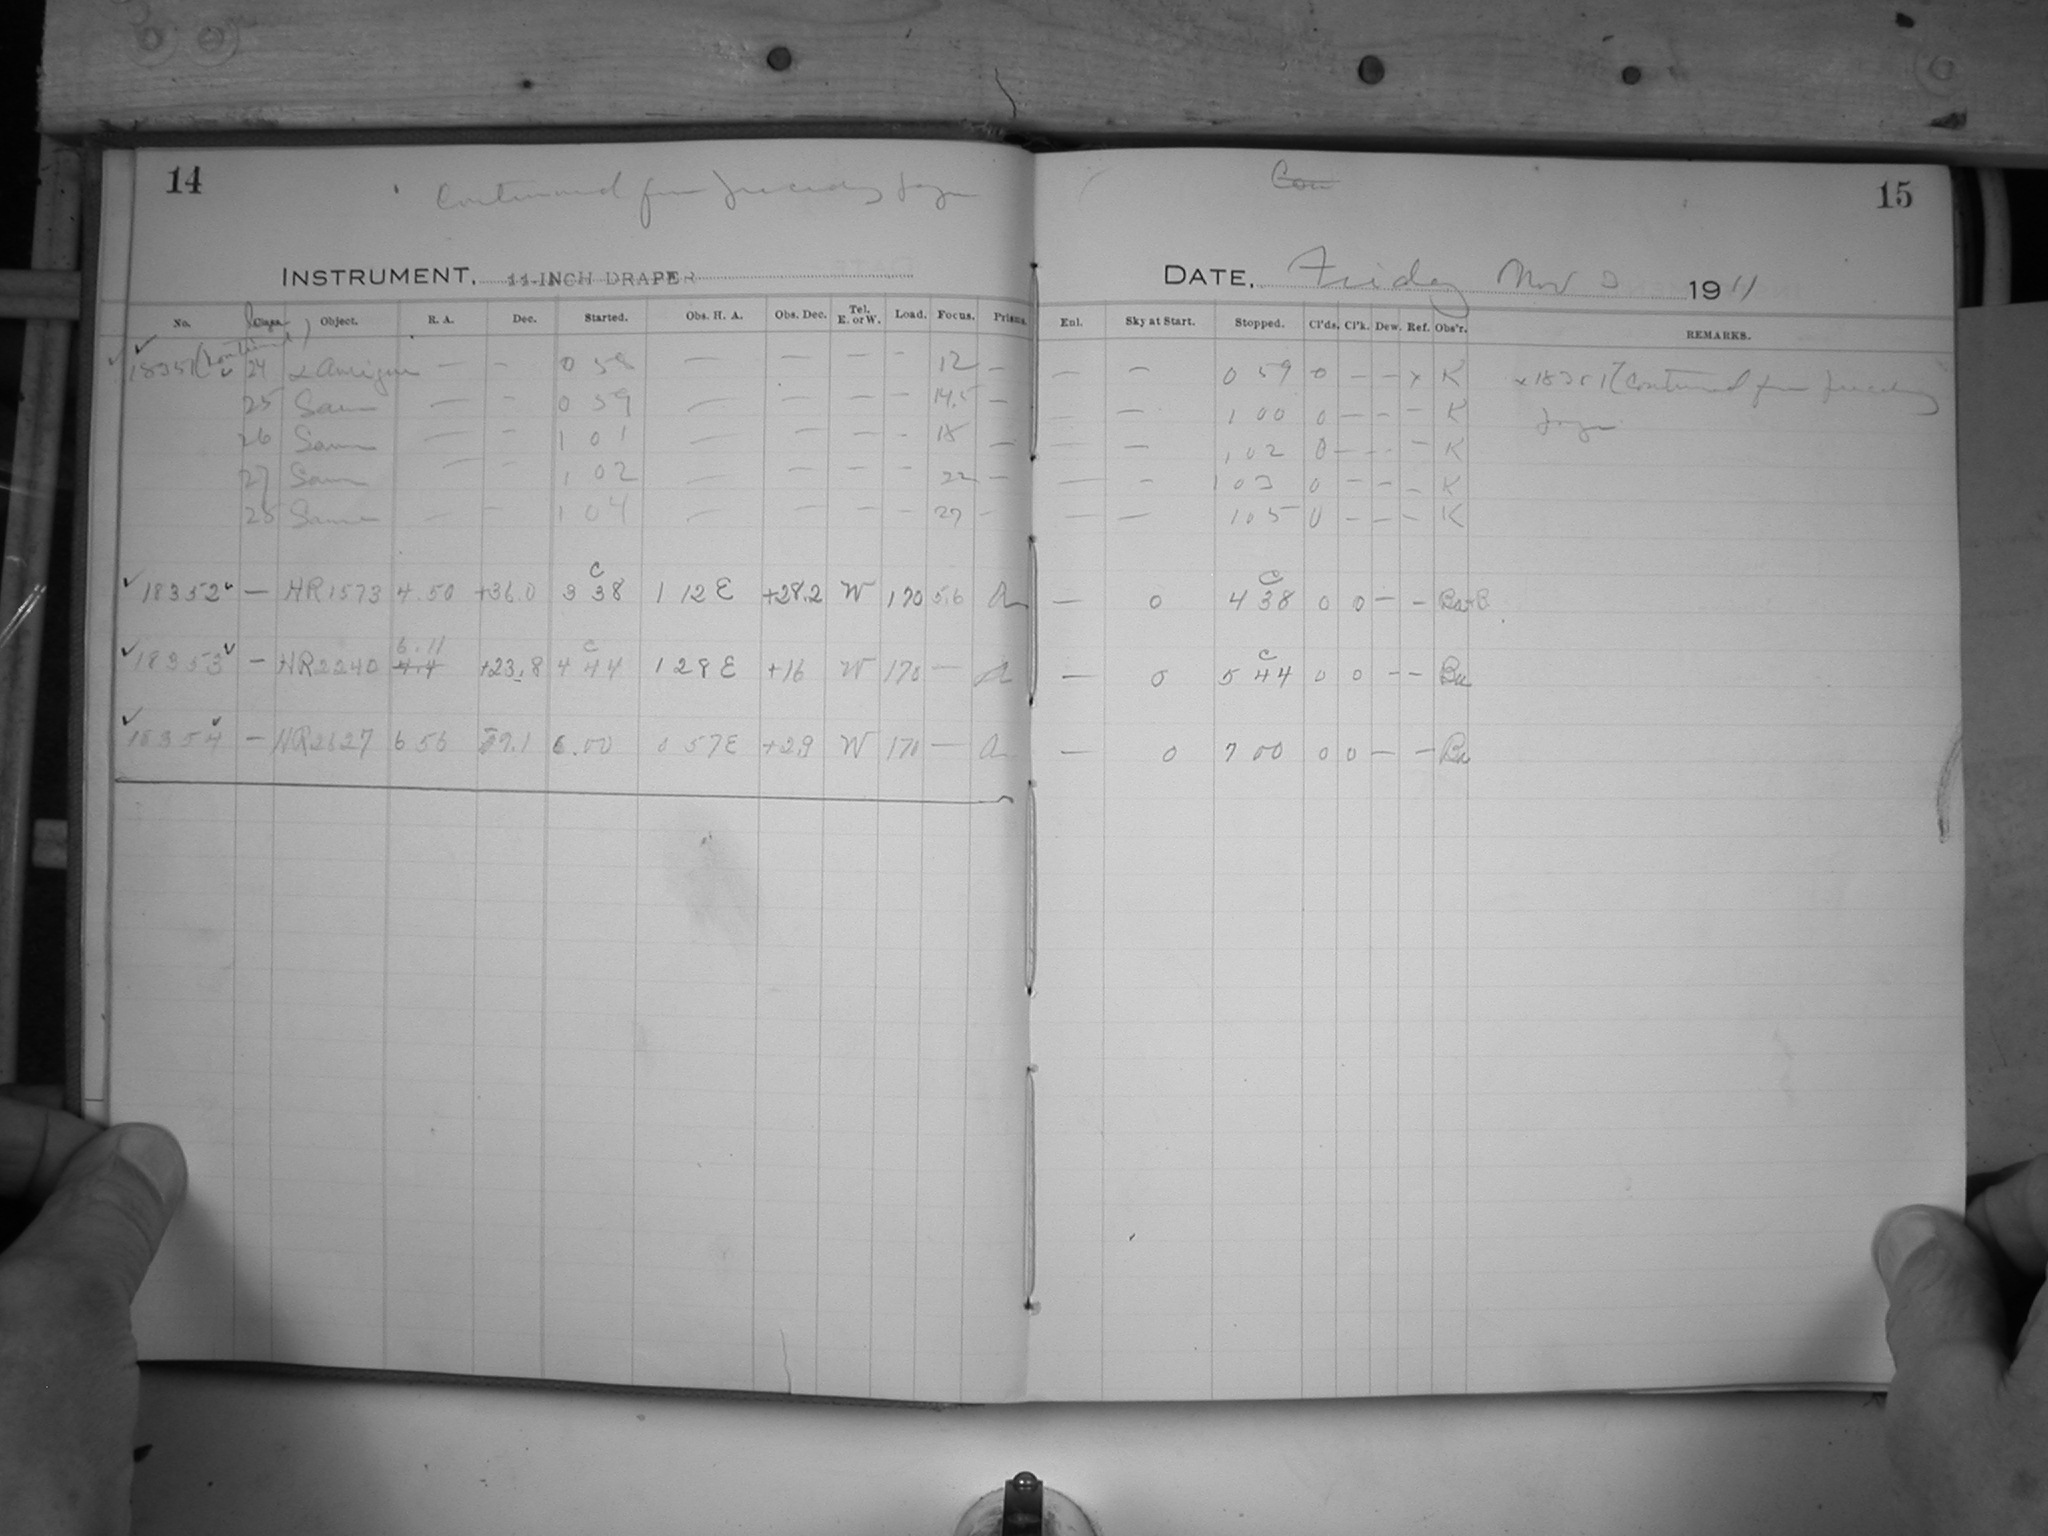 14
Continued from preceding page
INSTRUMENT, 11-INCH DRAPER
No. Class. Object. R. A. Dec. Started. Obs. H. A. Obs. Dec. Tel. E. or W. Load. Focus. Prisms.
18351 (continued) 24 α Aurigae — — 0 58 — — — — 12 —
25 Same — — 0 59 — — — — 14.5 —
26 Same — — 1 01 — — — — 18 —
27 Same — — 1 02 — — — — 22 —
28 Same — — 1 04 — — — — 27 —
18352 — HR1573 4.50 +36.0 C 3 38 1 12 E +28.2 W 170 5.6 a
18353 — HR2240 6.11 4.4 +23.8 C 4 44 1 28 E +16 W 170 — a
18354 — HR2627 6 56 6.00 0 57 E +2.9 W 170 — a
Con
15
DATE, Friday Nov 3 1911
Enl. Sky at Start. Stopped. Cl'ds. Cl'k. Dew. Ref. Obs'r. REMARKS.
— — 0 59 0 — — x K x 18351 (Continued from preceding
page
— — 1 00 0 — — — K
— — 1 02 0 — — — K
— — 1 03 0 — — — K
— — 1 05 0 — — — K
— 0 C 4 38 0 0 — — Ba+B
— 0 C 5 44 0 0 — — Ba
— 0 7 00 0 0 — — Ba